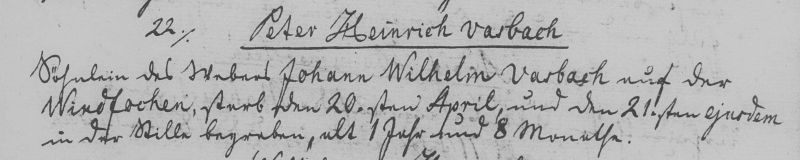 22./. Peter Heinrich Varbach
Söhnlein des Webers Johann Wilhelm Varbach auf der
Windfochen, starb den 20.sten April, und den 21.sten ejusdem
in der Stille begraben, alt 1 Jahr und 8 Monathe.